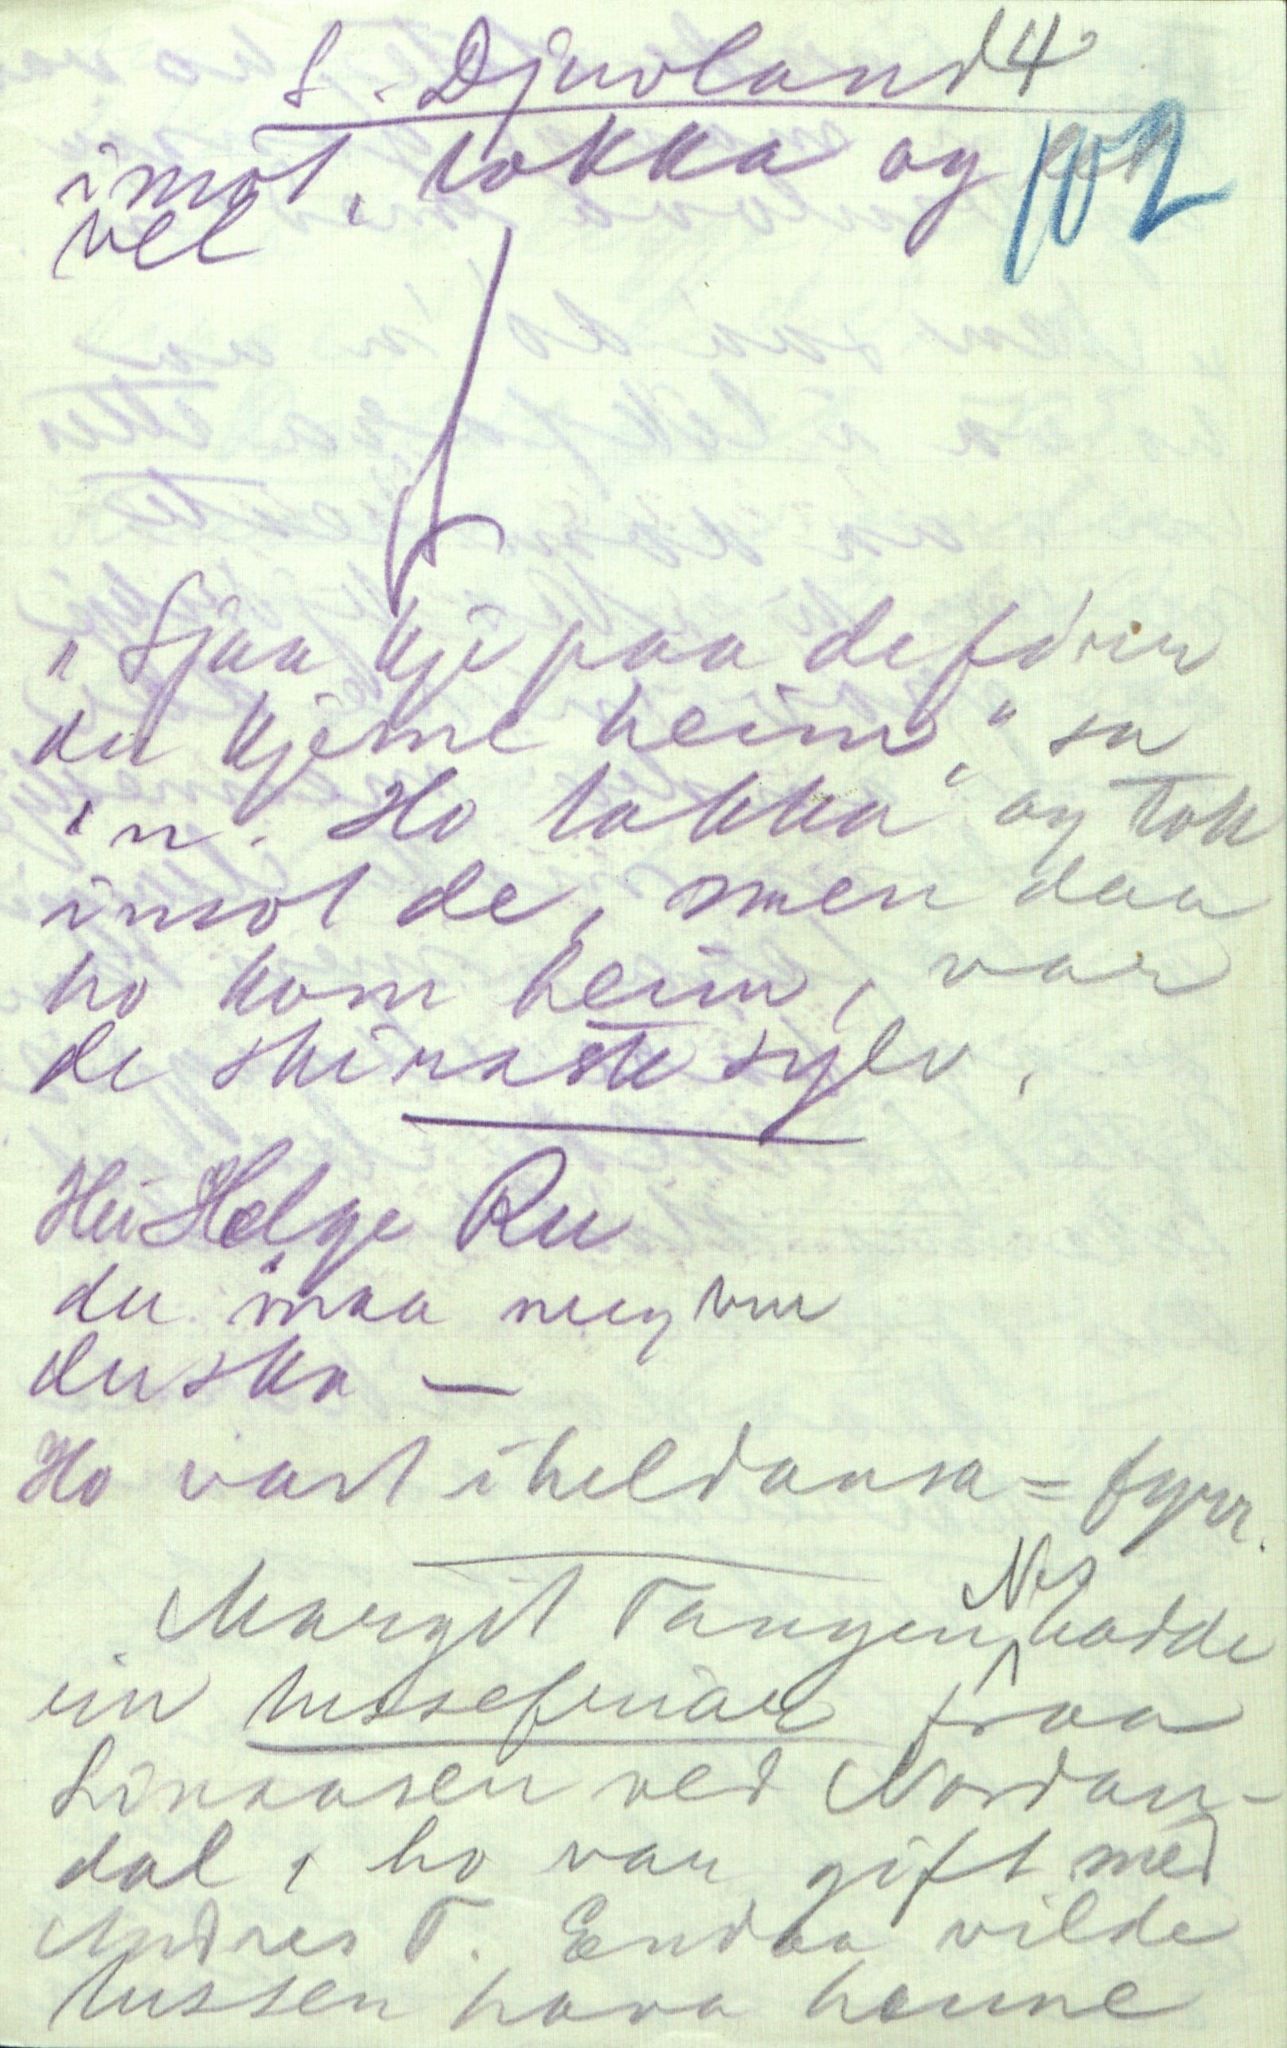 S. Djuvland 4
imot, takka og
102
vel
"Sjaa kje paa de förr
du kjeme heim," sa
'n. Ho takka og tok
imot de, men daa
ho kom heim, var
de skiraste sylv.
Hei Helge Ru
du maa meg
duska —
Ho vart iheldansa = fyrr.
Margit Tangen, Nes hadde
ein tussefriar fraa
Linaasen ved Nordan-
dal, ho var gift med
Andres T. Endaa vilde
tussen hava henne